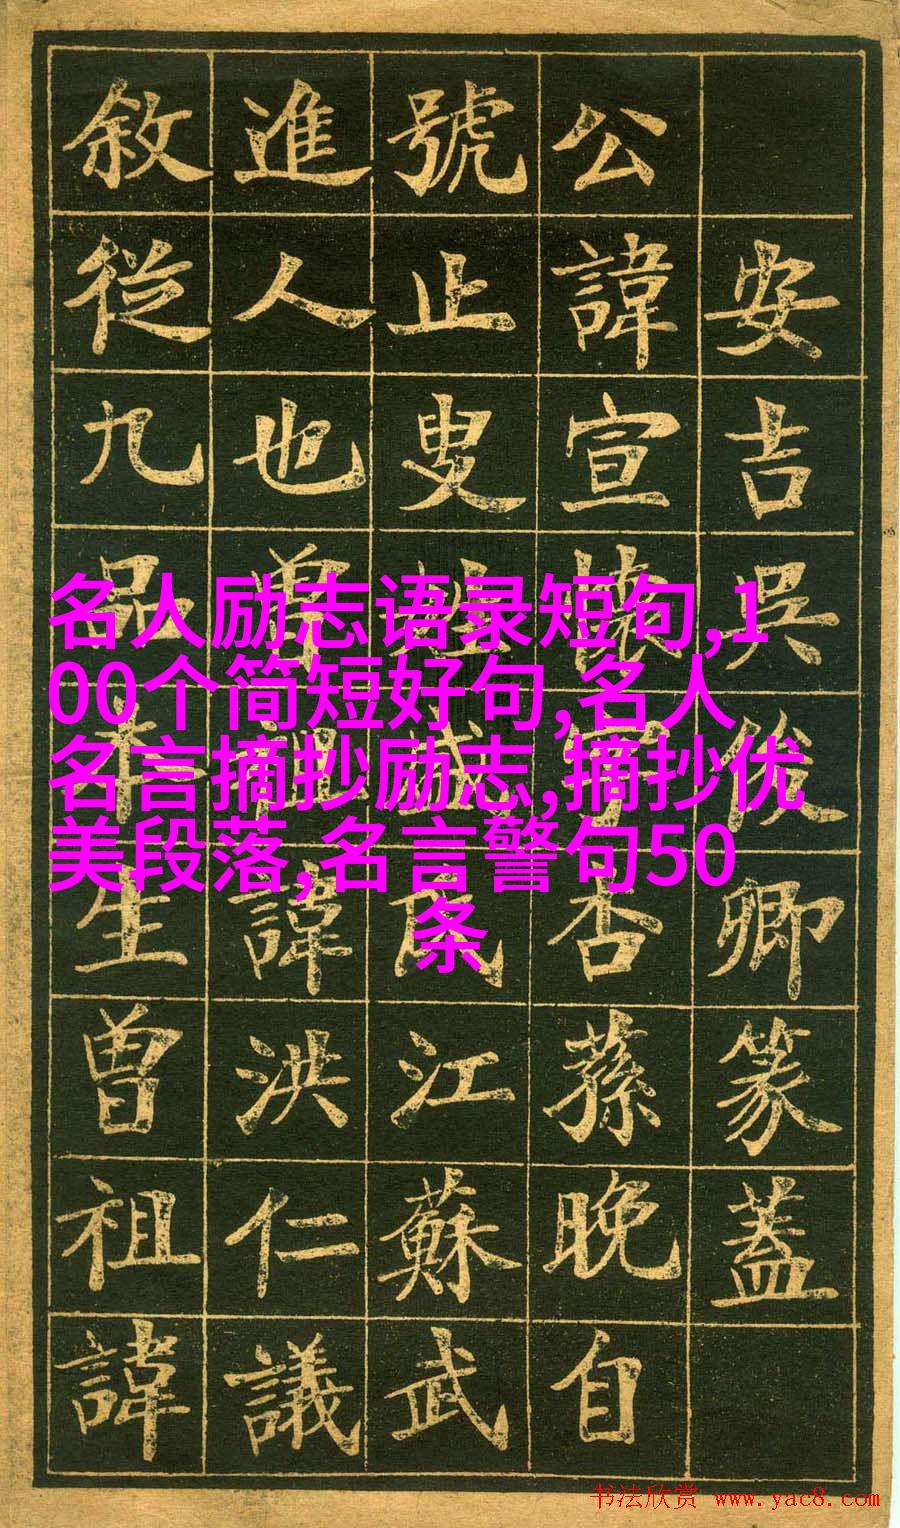 安吉吳俊卿篆蓋
公諱宣懷字杏蓀晚自
號止叟姓盛氏江蘇武
進人也曾祖諱洪仁議
敘從九品本生曾祖諱
名人励志语录短句,1
00个简短好句,名人
名言摘抄励志,摘抄优
美段落,名言警句50
条
书法欣赏 www.yac8.com